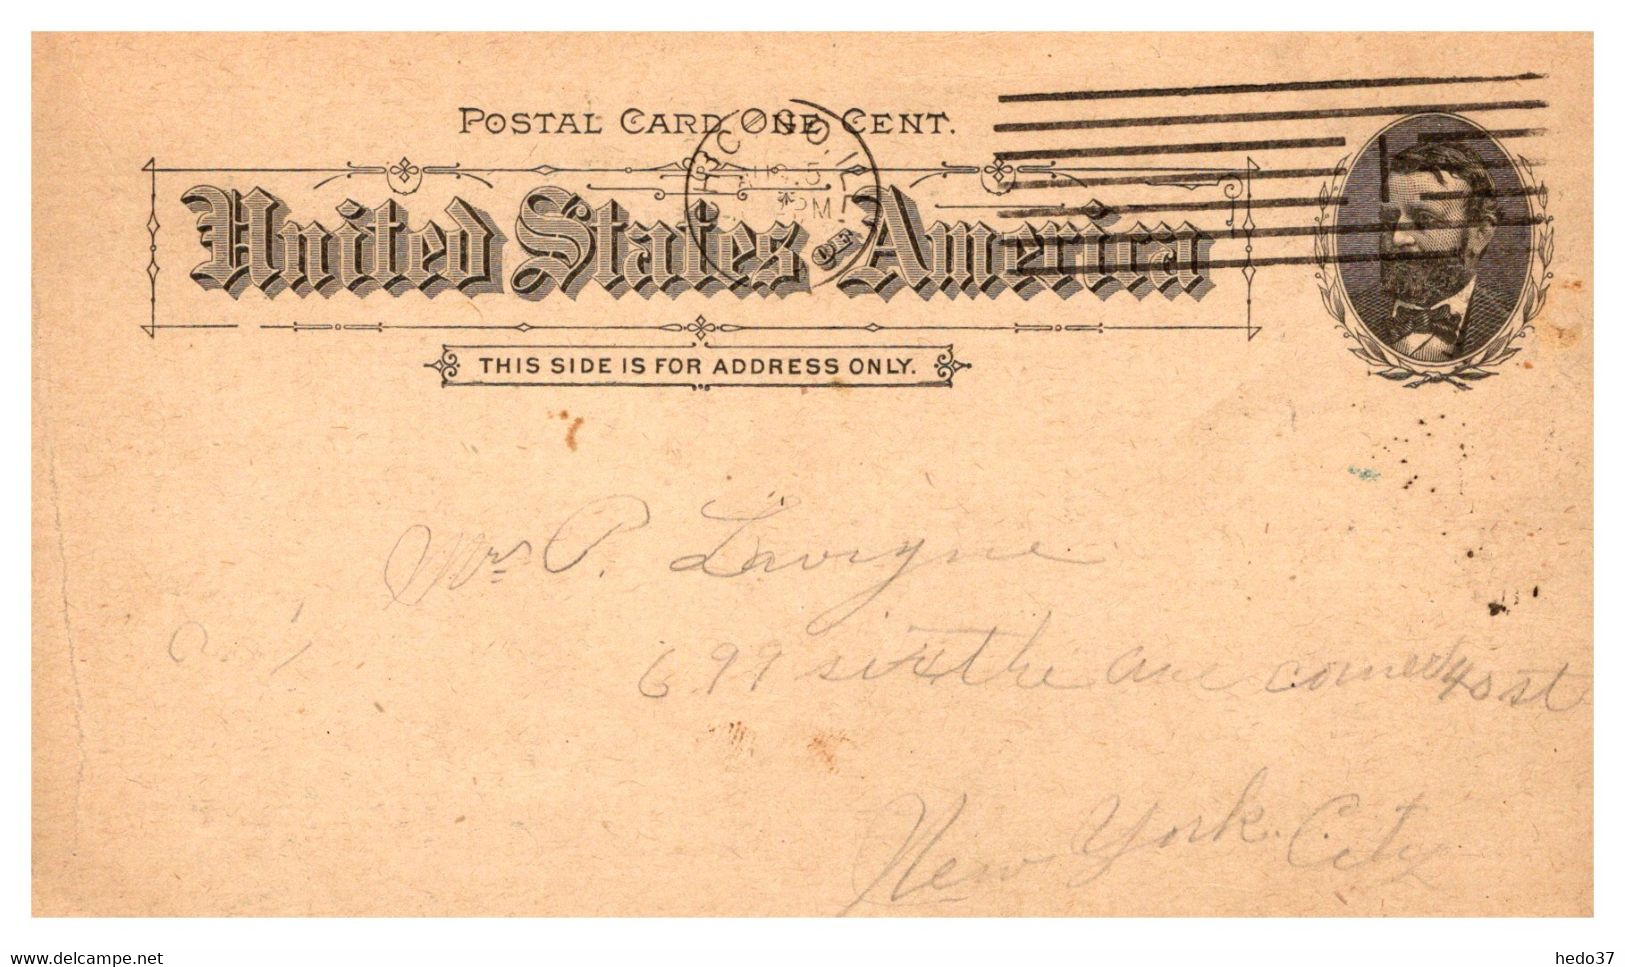 POSTAL CARD, ONE CENT.
United States America
THIS SIDE IS FOR ADDRESS ONLY.
Mrs P. Lavigne
699 sixthe ave corner 40 st
New York. City
www.delcampe.net
hedo37